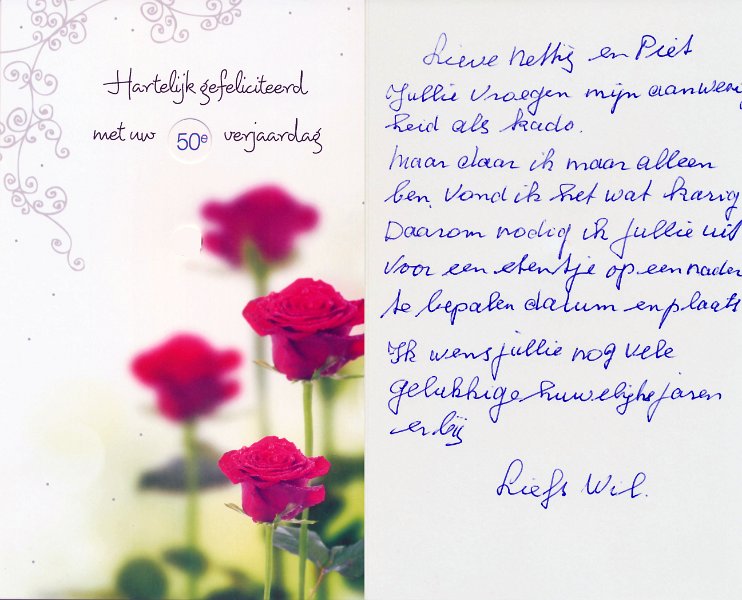 Hartelijk gefeliciteerd
met uw 50e verjaardag
Lieve Nettig en Piet
Jullie vroegen mijn aanwezig
heid als kado.
Maar daar ik maar alleen
ben, vond ik het wat karig
Daarom nodig ik jullie uit
voor een etentje op een nader
te bepalen datum en plaats
Ik wens jullie nog vele
gelukkige huwelijksjaren
erbij
Liefs Wil.